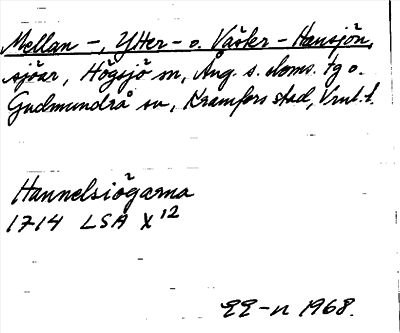 Mellan-, Ytter- o. Väster-Hansjön,
sjöar, Högsjö sn, Ång. s. doms. tg o.
Gudmundrå sn, Kramfors stad, Vrml. l.
Hannelsiögarna
1714 LSA X 12
EE-n 1968.